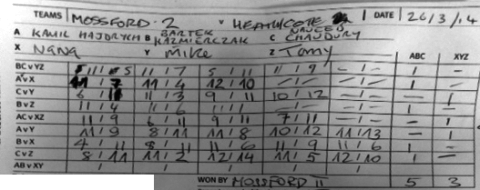 TEAMS MOSSFORD 2 V HEATHCOTE DATE 26/3/14
A KAMIL HAJDRYCH B BARTEK KAZMIERCZAK C NAVEED CHAUDURY
X NANA Y Mike Z Tomy
ABC XYZ
BCvYZ 11/7 5/11 11/9 -/- 1 -
AvX 11/7 11/4 12/10 -/- -/- 1 -
CvY 11/3 9/11 10/12 -/- - 1
BvZ 11/4 -/- -/- 1 -
ACvXZ 11/9 11/6 9/11 7/11 -/- - 1
AvY 11/9 8/11 11/8 10/12 11/13 - 1
BvX 4/11 8/11 11/6 11/9 11/6 1 -
CvZ 8/11 11/2 12/14 11/5 12/10 1 -
ABvXY
WON BY MOSSFORD II 5 3